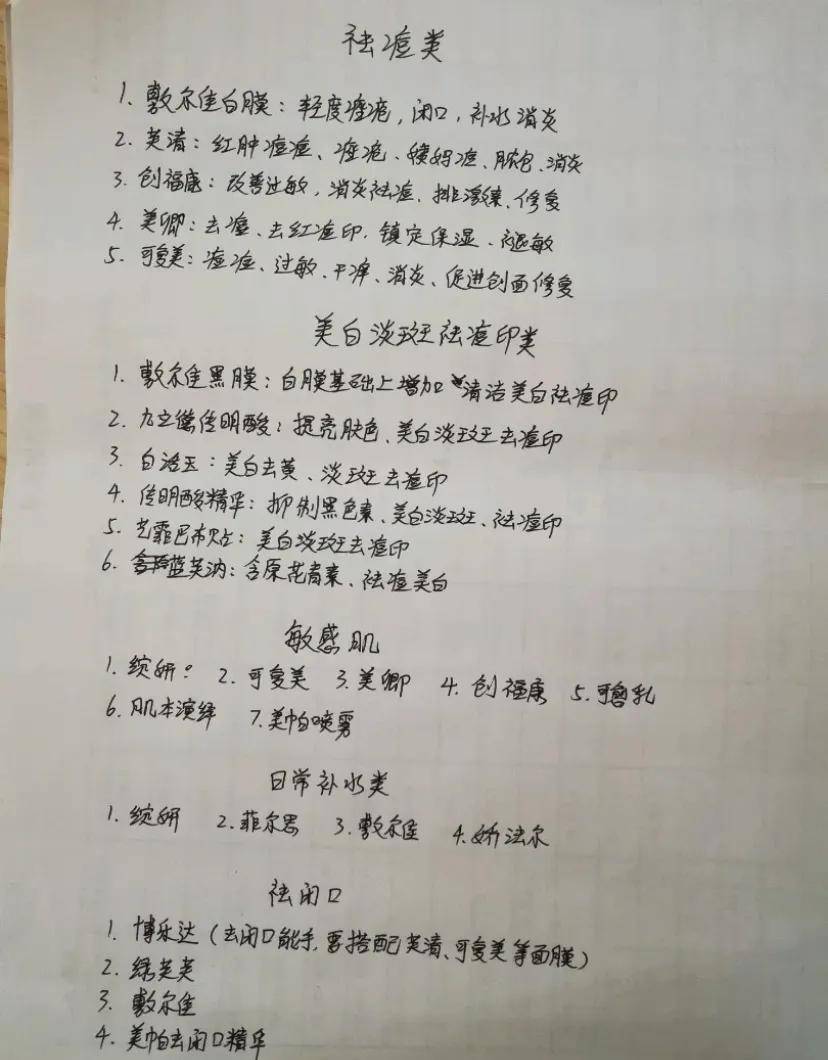 祛痘类
1. 敷尔佳白膜：轻度痤疮，闭口，补水消炎
2. 芙清：红肿痘痘、痤疮、姨妈痘、脓包、消炎
3. 创福康：改善过敏，消炎祛痘、排激素、修复
4. 美卿：去痘、去红痘印、镇定保湿、褪敏
5. 可复美：痘痘、过敏、干痒、消炎、促进创面修复
美白淡斑祛痘印类
1. 敷尔佳黑膜：白膜基础上增加清洁美白祛痘印
2. 传明酸：提亮肤色、美白淡斑去痘印
3. 白洛玉：美白去黄、淡斑去痘印
4. 传明酸精华：抑制黑色素、美白淡斑、祛痘印
5. 芝霏巴布贴：美白淡斑去痘印
6. 蓝芙汭：含原花青素、祛痘美白
敏感肌
1. 绽妍： 2. 可复美 3. 美卿 4. 创福康 5. 可鲁乳
6. 肌本演绎 7. 美帕喷雾
日常补水类
1. 绽妍 2. 菲尔思 3. 敷尔佳 4. 娇法尔
祛闭口
1. 博乐达（去闭口能手，要搭配芙清、可复美等面膜）
2. 绿芙芙
3. 敷尔佳
4. 美帕去闭口精华